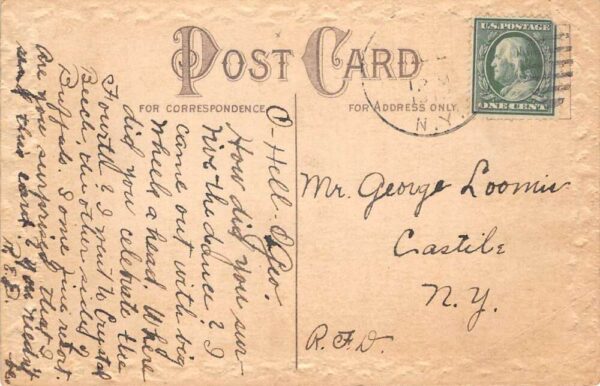 POST CARD
FOR CORRESPONDENCE.
FOR ADDRESS ONLY.
U.S. POSTAGE
ONE CENT
N.Y.
O-Hell-O Geo.
How did you sur
vive the dance? I
came out with big
wheels a head. Where
did you celebrate the
Fourth? I went to Crystal
Beech, the other side of
Buffalo. Some fine resort.
Are you surprized that I
send this card you needn't
be
Mr. George Loomis
Castile
N.Y.
R.F.D.